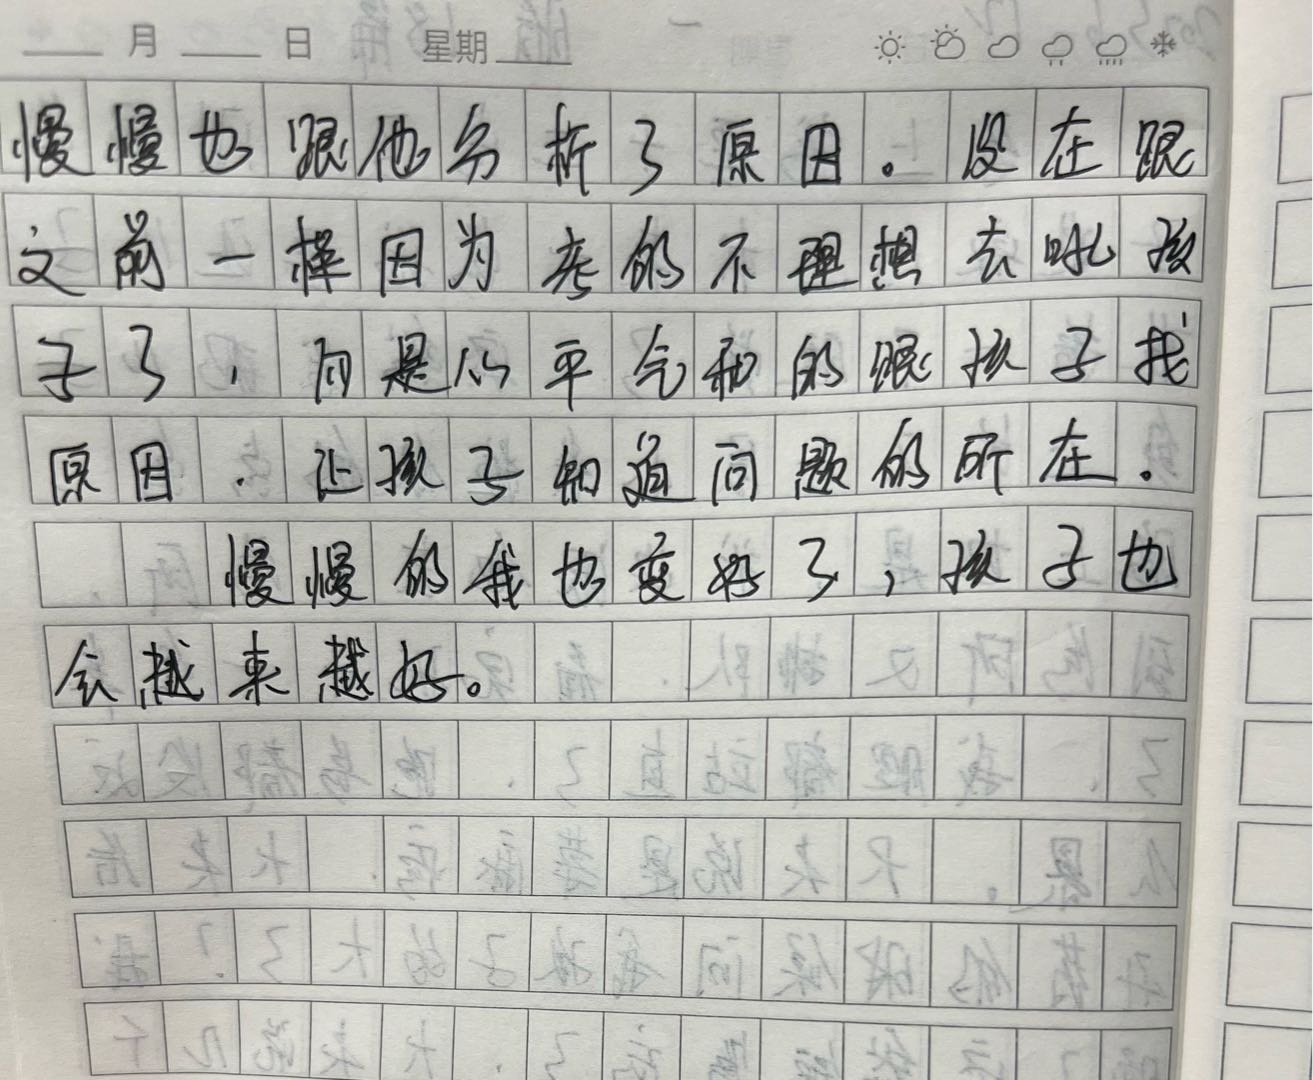 月 日 星期
慢慢也跟他分析了原因。没在跟
之前一样因为考的不理想去吼孩
子了，而是心平气和的跟孩子找
原因.让孩子知道问题的所在.
慢慢的我也变好了,孩子也
会越来越好。